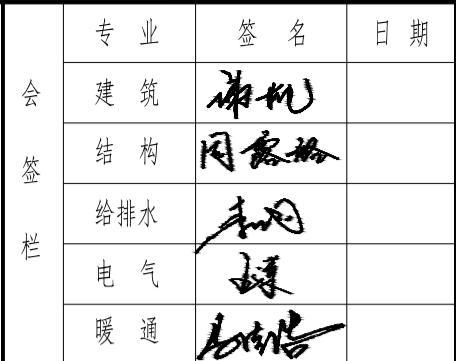 会签栏
专业 签名 日期
建筑
结构 周露格
给排水
电气
暖通